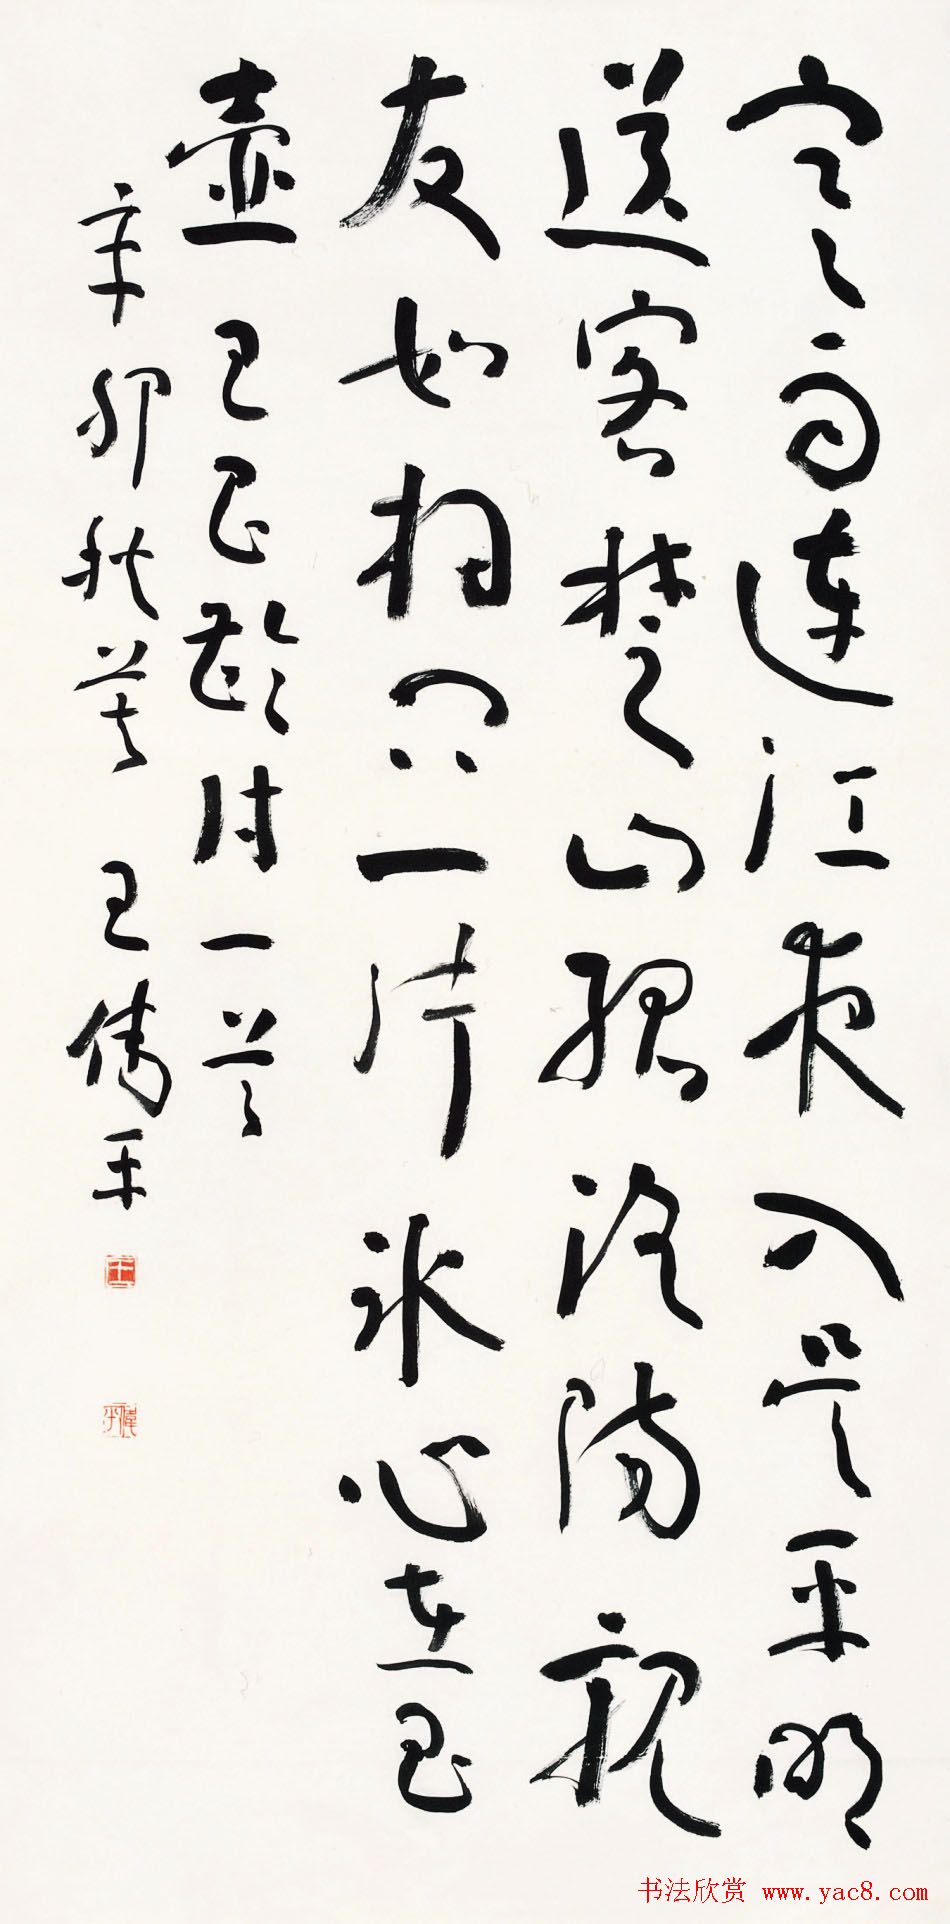 寒雨连江夜入吴平明
送客楚山孤洛阳亲
友如相问一片冰心在玉
壶 王昌龄诗一首
辛卯秋英 王伟平
王
伟平
书法欣赏 www.yac8.com